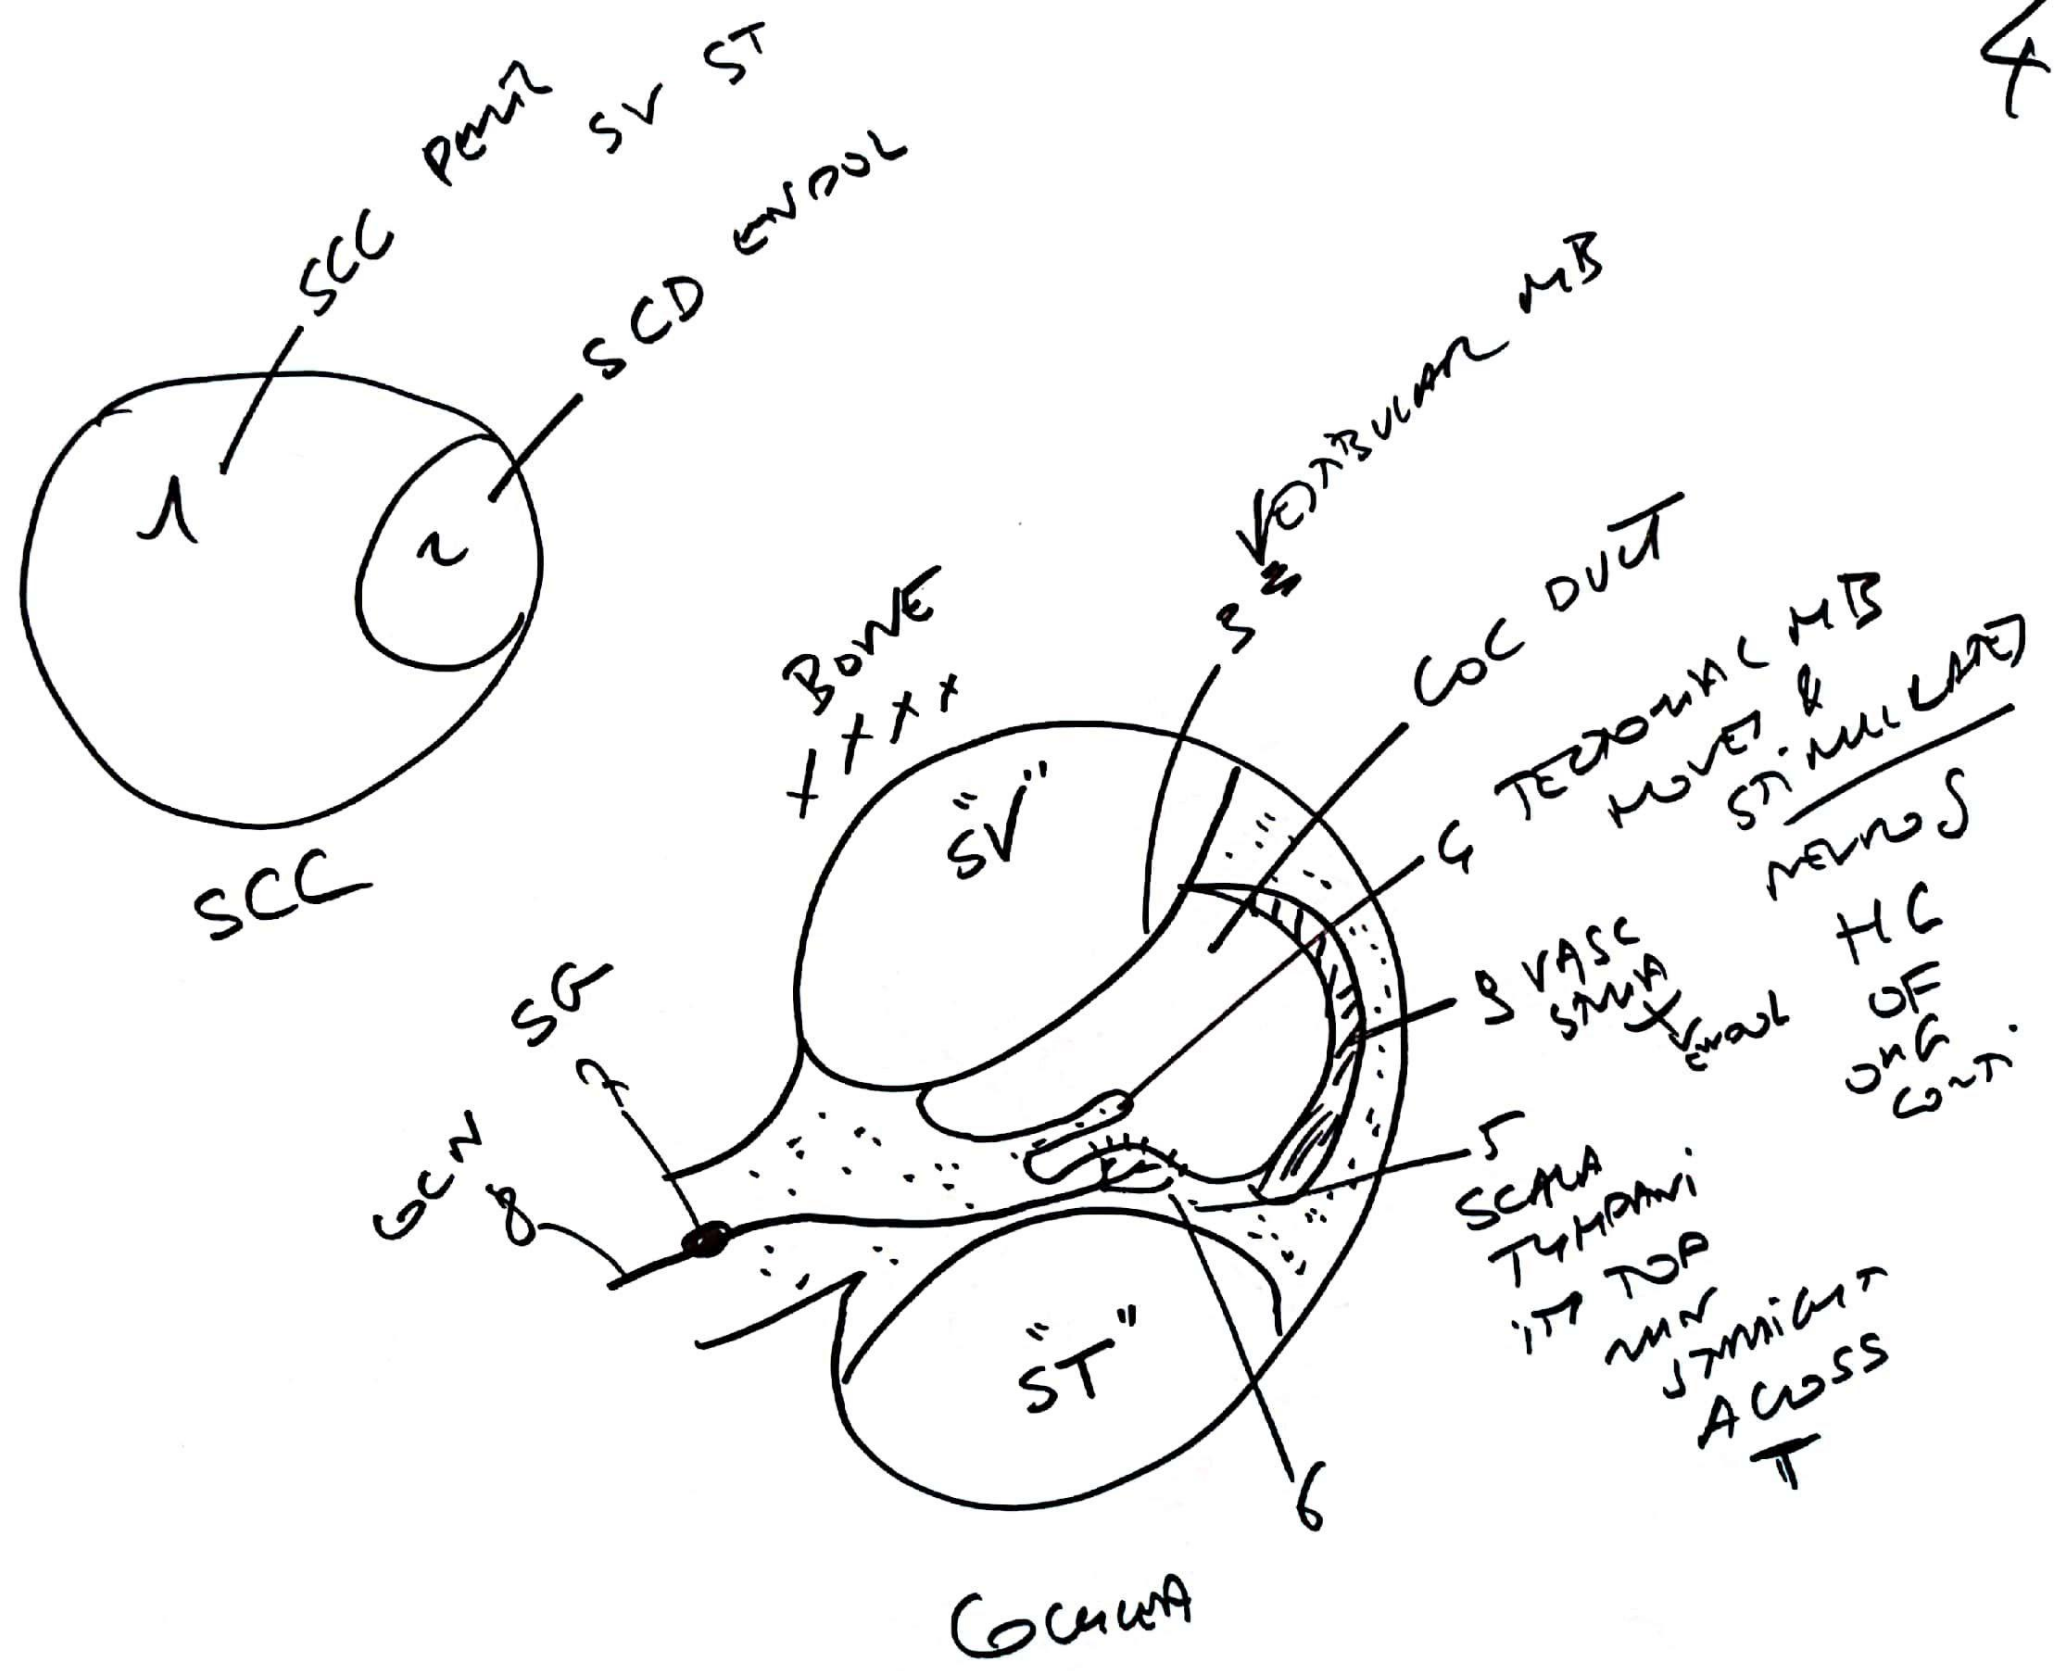 4
SCC PERIL
SV ST
SCD ENDOL
1
2
SCC
BONE
3 VESTIBULAR MB
COC DUCT
4 TECTORIAL MB
MOVES &
STIMULLATES
NEURO S
HC
OF
ORG
CORTI.
"SV"
9 VASC
STRIA
ENDOL
SG
7
GCN
8
5
SCALA
TYMPANI
ITS TOP
RUN
STRAIGHT
ACROSS
"ST"
6
COCHLEA